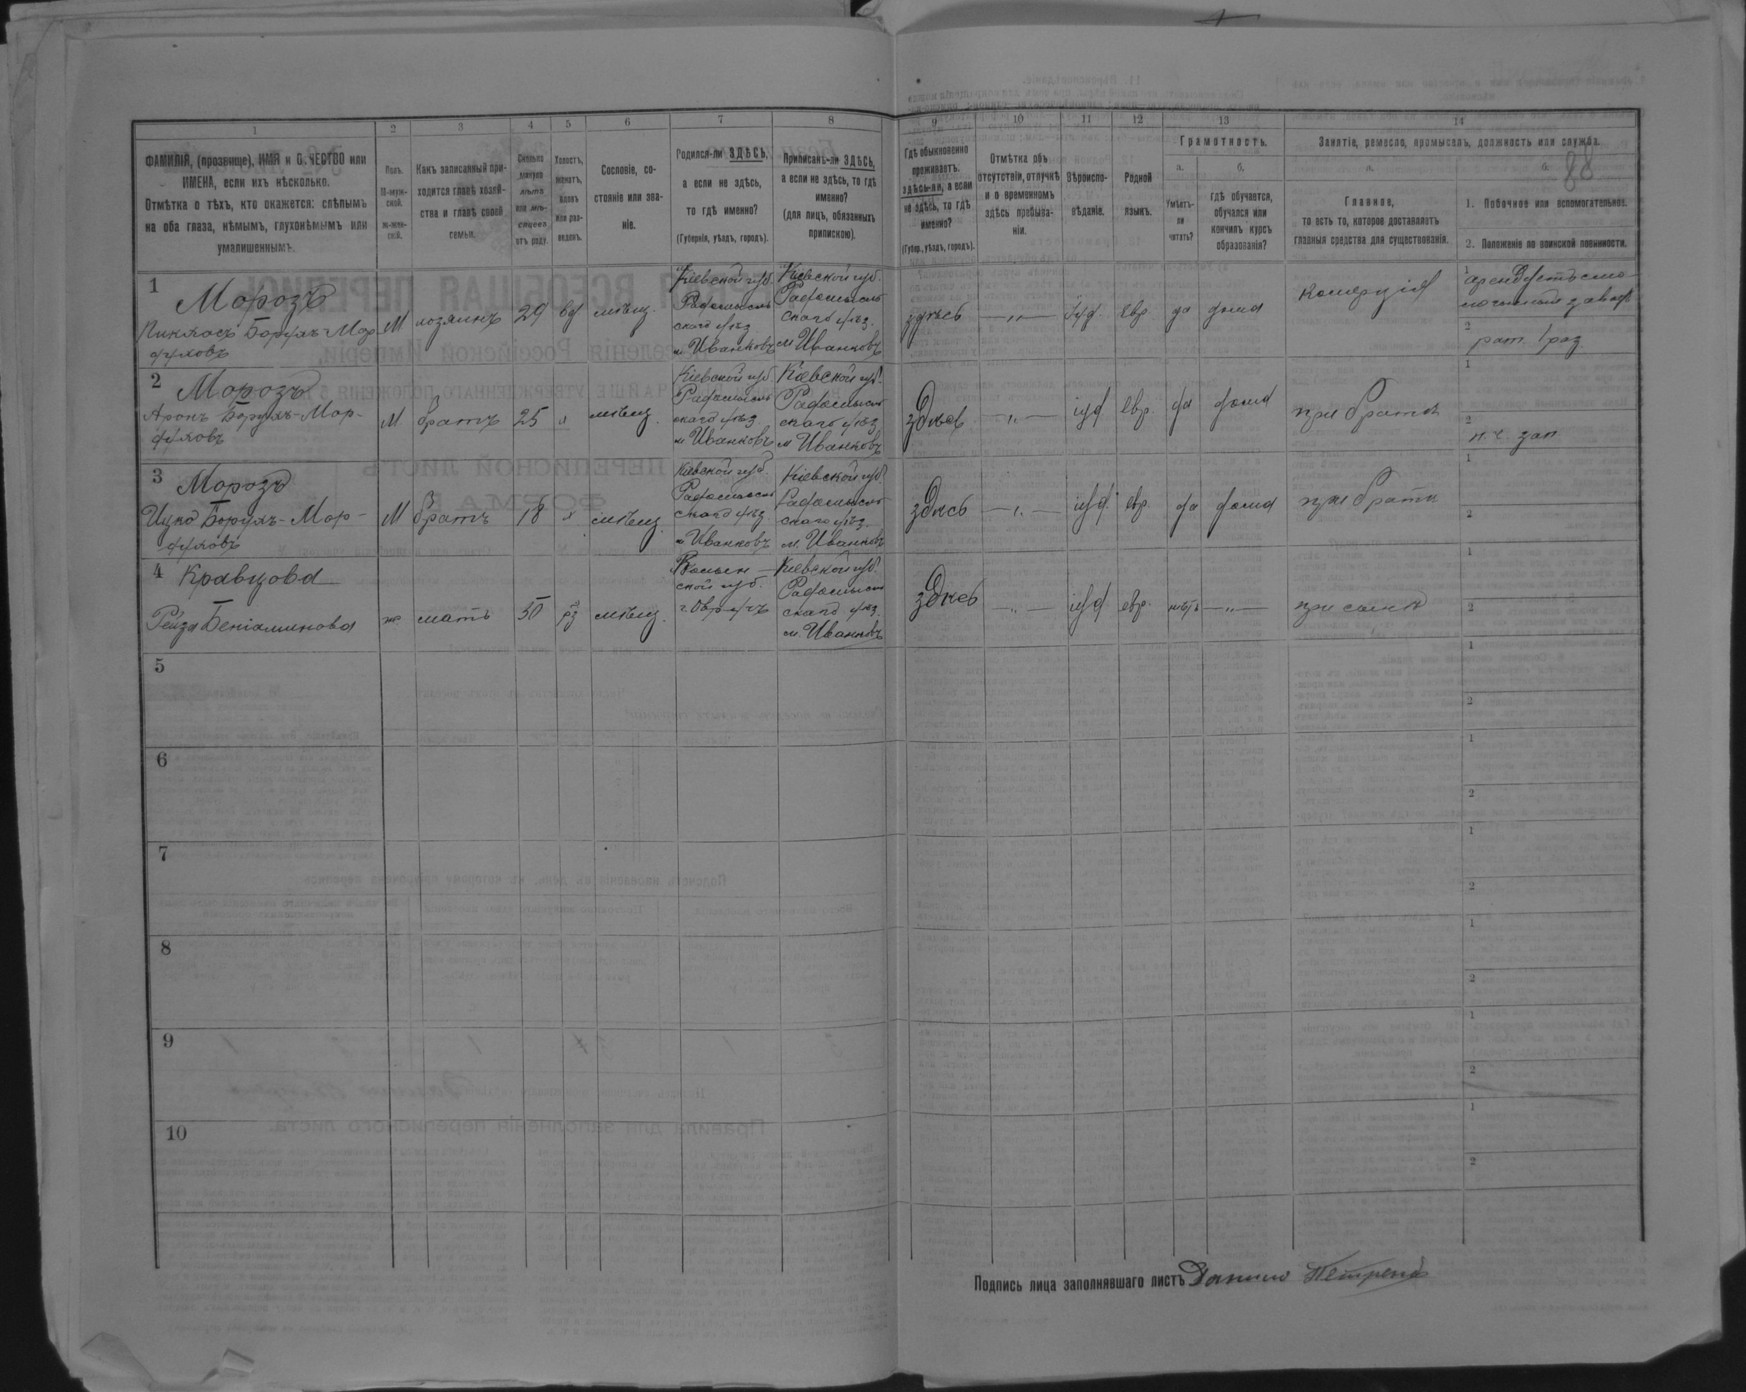 1
2
3
4
5
6
7
8
9
10
11
12
13
14
ФАМИЛІЯ, (прозвище), ИМЯ и О.ЧЕСТВО или
ИМЕНА, если ихъ нѣсколько.
Отмѣтка о тѣхъ, кто окажется: слѣпымъ
на оба глаза, нѣмымъ, глухонѣмымъ или
умалишеннымъ.
Полъ.
М-муж-
ской.
Ж-жен-
скій.
Какъ записанный при-
ходится главѣ хозяй-
ства и главѣ своей
семьи.
Сколько
минуло
лѣтъ
или мѣ-
сяцевъ
отъ роду.
Холостъ,
женатъ,
вдовъ
или раз-
веденъ.
Сословіе, со-
стояніе или зва-
ніе.
Родился-ли ЗДѢСЬ,
а если не здѣсь,
то гдѣ именно?
(Губернія, уѣздъ, городъ).
Приписанъ-ли ЗДѢСЬ,
а если не здѣсь, то гдѣ
именно?
(для лицъ, обязанныхъ
припискою).
Гдѣ обыкновенно
проживаетъ:
здѣсь-ли, а если
не здѣсь, то гдѣ
именно?
(Губер., уѣздъ, городъ).
Отмѣтка объ
отсутствіи, отлучкѣ
и о временномъ
здѣсь пребыва-
ніи.
Вѣроиспо-
вѣданіе.
Родной
языкъ.
Грамотность.
а.
Умѣетъ-
ли
читать?
б.
гдѣ обучается,
обучался или
кончилъ курсъ
образованія?
Занятіе, ремесло, промыселъ, должность или служба.
а.
Главное,
то есть то, которое доставляетъ
главныя средства для существованія.
б.
88
1. Побочное или вспомогательное.
2. Положеніе по воинской повинности.
1
Морозъ
Борухъ-Мор
М
хозяинъ
29
вд
мѣщ.
Кіевской губ.
Радомысль
скаго уѣз.
м Иванковъ
Кіевской губ.
Радомысль
скаго уѣз.
м Иванковъ
здѣсь
—„—
іуд.
евр.
да
дома
комерція
1
2
рат. 1 раз.
2
Морозъ
Аронъ Борухъ-Мор-
М
братъ
25
х
мѣщ.
Кіевской губ.
Радомысль
скаго уѣз.
м Иванковъ
Кіевской губ.
Радомысль
скаго уѣз.
м Иванковъ
здѣсь
—„—
іуд
евр.
да
дома
при братѣ
1
2
3
Морозъ
Ицко Борухъ-Мор-
М
братъ
18
х
мѣщ.
Кіевской губ.
Радомысль
скаго уѣз.
м Иванковъ
Кіевской губ.
Радомысль
скаго уѣз.
м. Иванковъ
здѣсь
—„—
іуд.
евр.
да
дома
при братѣ
1
2
4
Кравцова
Рейза Беніаминова
ж
мать
50
рз
мѣщ.
Волын-
ской губ.
г. Овручъ
Кіевской губ.
Радомысль
скаго уѣз.
м. Иванковъ
здѣсь
—„—
іуд
евр.
нѣтъ
—„—
при сынѣ
1
2
5
1
2
6
1
2
7
1
2
8
1
2
9
1
2
10
1
2
Подпись лица заполнявшаго листъ